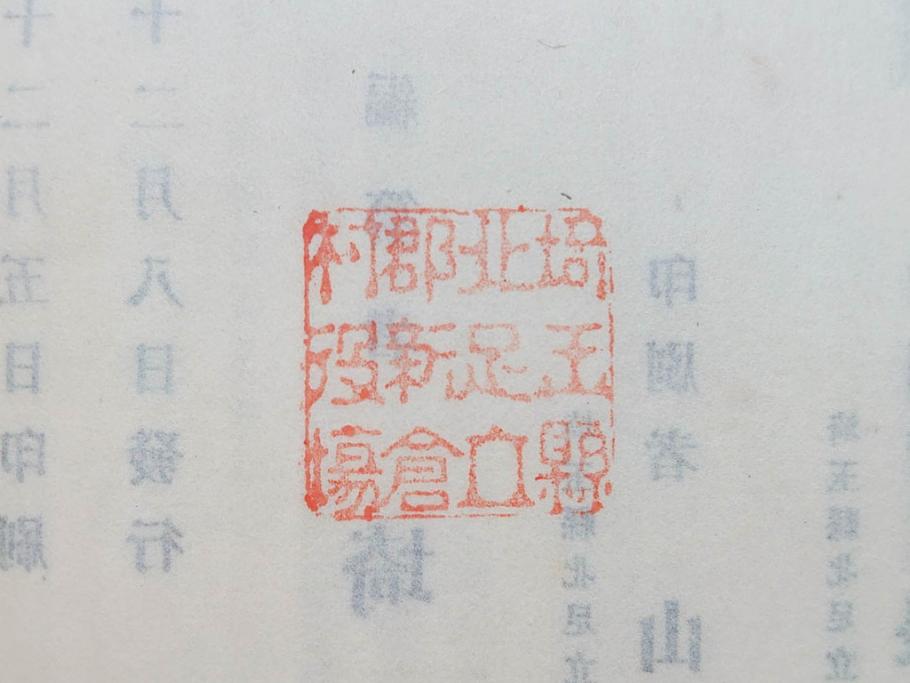 埼玉縣
北足立
郡新倉
村役場
十二月五日印刷
十二月八日發行
編
埼
縣北足立
印刷者 山
埼玉縣北足立